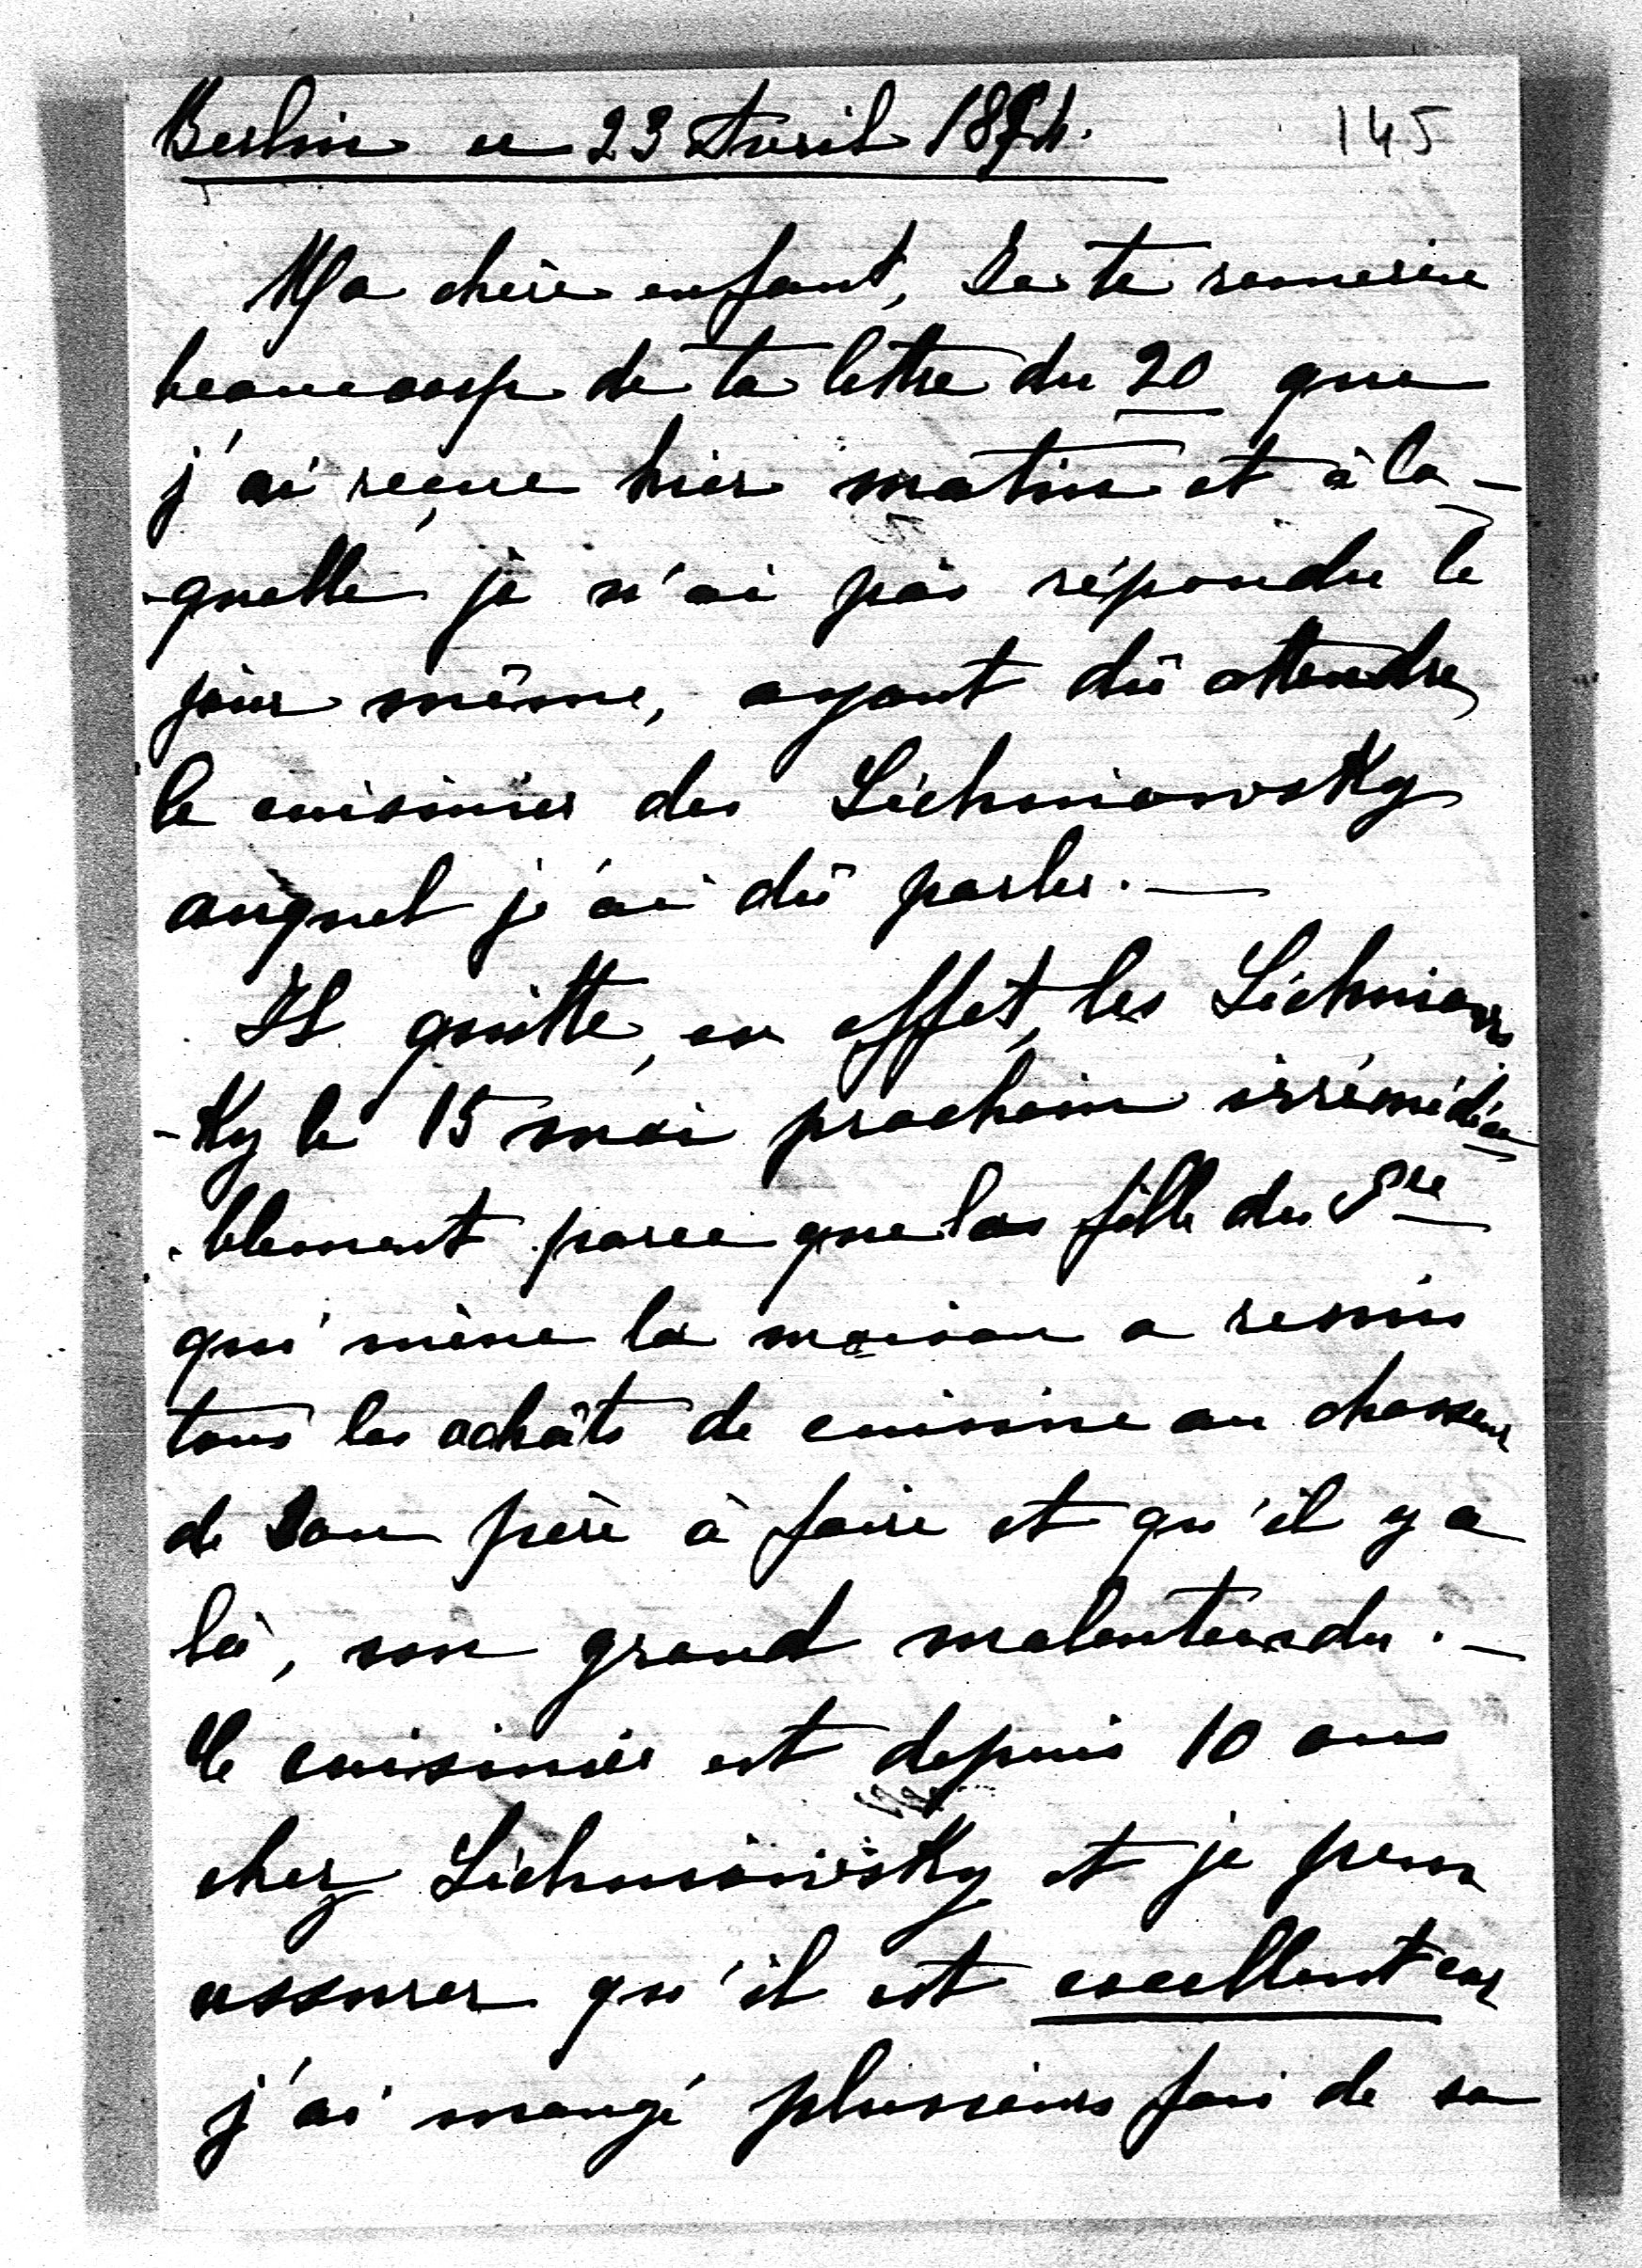 Berlin ce 23 Avril 1894.
145
Ma chère enfant, Je te remercie
beaucoup de ta lettre du 20 que
j'ai reçue hier matin et à la-
-quelle je n'ai pas répondu le
jour même, ayant dû attendre
le cuisinier des Lichnowsky
auquel j'ai dû parler. —
Il quitte, en effet, les Lichnows
-ky le 15 mai prochain irrémédia
-blement parce que la fille du Pce
qui mène la maison a remis
tous les achâts de cuisine au chasseur
de son père à faire et qu'il y a
là, un grand malentendu. —
Le cuisinier est depuis 10 ans
chez Lichnowsky et je peux
assurer qu'il est excellent car
j'ai mangé plusieurs fois de sa